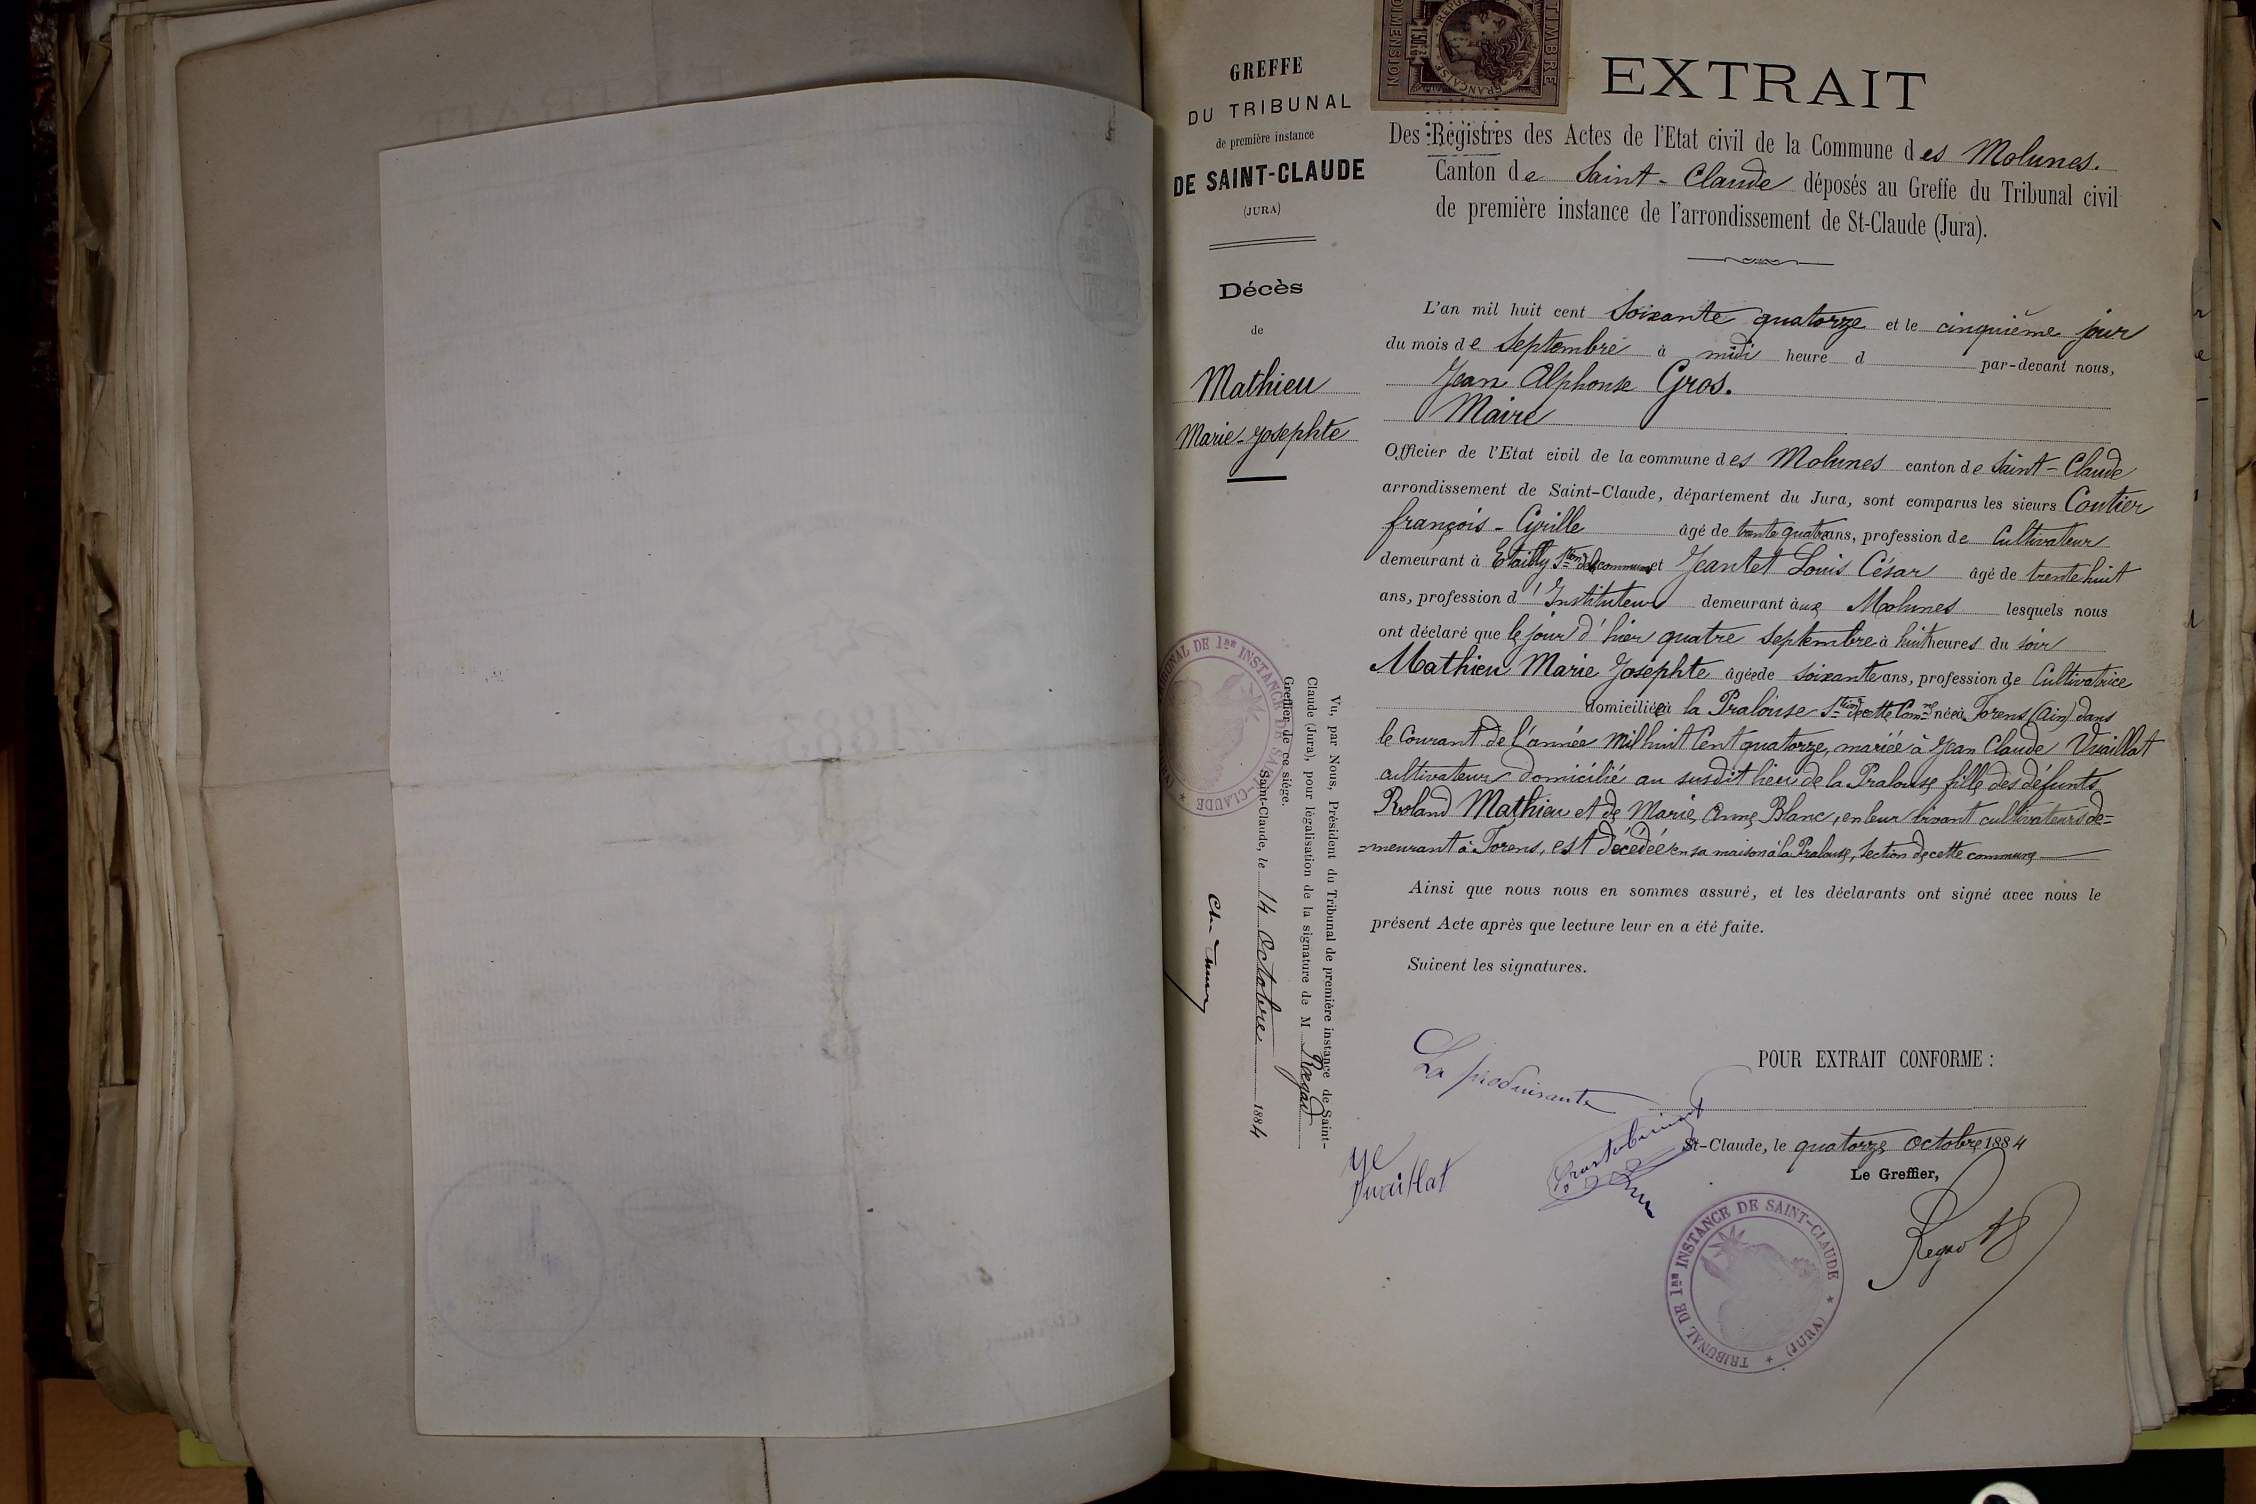 GREFFE
DU TRIBUNAL
de première instance
DE SAINT-CLAUDE
(JURA)
Décès
de
Mathieu
Marie-Josephte
TIMBRE
DIMENSION
EXTRAIT
Des Registres des Actes de l'Etat civil de la Commune des Molunes.
Canton de Saint-Claude déposés au Greffe du Tribunal civil
de première instance de l'arrondissement de St-Claude (Jura).
L'an mil huit cent soixante quatorze et le cinquième jour
du mois de Septembre à midi heure d par-devant nous,
Jean Alphonse Gros.
Maire
Officier de l'Etat civil de la commune des Molunes canton de Saint-Claude
arrondissement de Saint-Claude, département du Jura, sont comparus les sieurs Coutier
françois-Cyrille âgé de trente quatre ans, profession de Cultivateur
demeurant à Etailly Son de la commune et Jeantet Louis César âgé de trente huit
ans, profession d'Instituteur demeurant aux Molunes lesquels nous
ont déclaré que le jour d'hier quatre septembre à huit heures du soir
Mathieu Marie Josephte âgée de soixante ans, profession de Cultivatrice
domiciliée à la Pralouse Stion de cette Comne née à Forens (Ain) dans
le Courant de l'année mil huit Cent quatorze, mariée à Jean Claude Vuaillat
cultivateur domicilié au susdit lieu de la Pralouse fille des défunts
Roland Mathieu et de Marie Anne Blanc, en leur vivant cultivateurs de=
=meurant à Forens, est décédée en sa maison à la Pralouse, section de cette commune
Ainsi que nous nous en sommes assuré, et les déclarants ont signé avec nous le
présent Acte après que lecture leur en a été faite.
Suivent les signatures.
POUR EXTRAIT CONFORME :
St-Claude, le quatorze octobre 1884
Le Greffier,
Regad
TRIBUNAL DE 1re INSTANCE DE SAINT-CLAUDE
(JURA)
La produisante
Vuaillat
Vu, par Nous, Président du Tribunal de première instance de Saint-
Claude (Jura), pour légalisation de la signature de M Regad
Greffier de ce siège.
Saint-Claude, le 14 Octobre 1884
TRIBUNAL DE 1re INSTANCE DE SAINT-CLAUDE